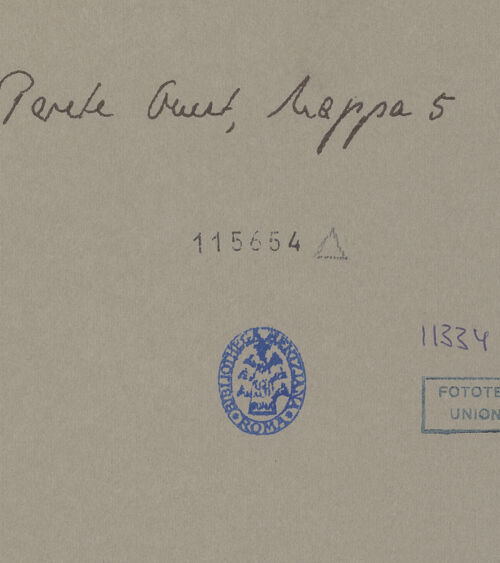 Parete Ouest, Mappa 5
115654
BIBLIOTHECA HERTZIANA
ROMA
11334
FOTOTE
UNION